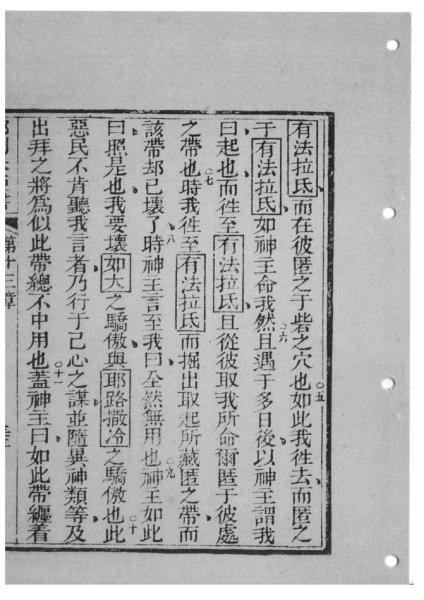 有法拉氐而在彼匿之于砦之穴也。五如此我徃去而匿之
于有法拉氐如神主命我然且。六遇于多日後以神主謂我
曰起也而徃至有法拉氐且從彼取我所命爾匿于彼處
之帶也。七時我徃至有法拉氐而掘出取起所藏匿之帶而
該帶却已壞了。八時神主言至我曰全然無用也。九神主如此
曰照是也我要壞如大之驕傲與耶路撒冷之驕傲也。十此
惡民不肯聽我言者乃行于己心之謀並隨異神類等及
出拜之將為似此帶總不中用也。十一蓋神主曰如此帶纏着
第十三章